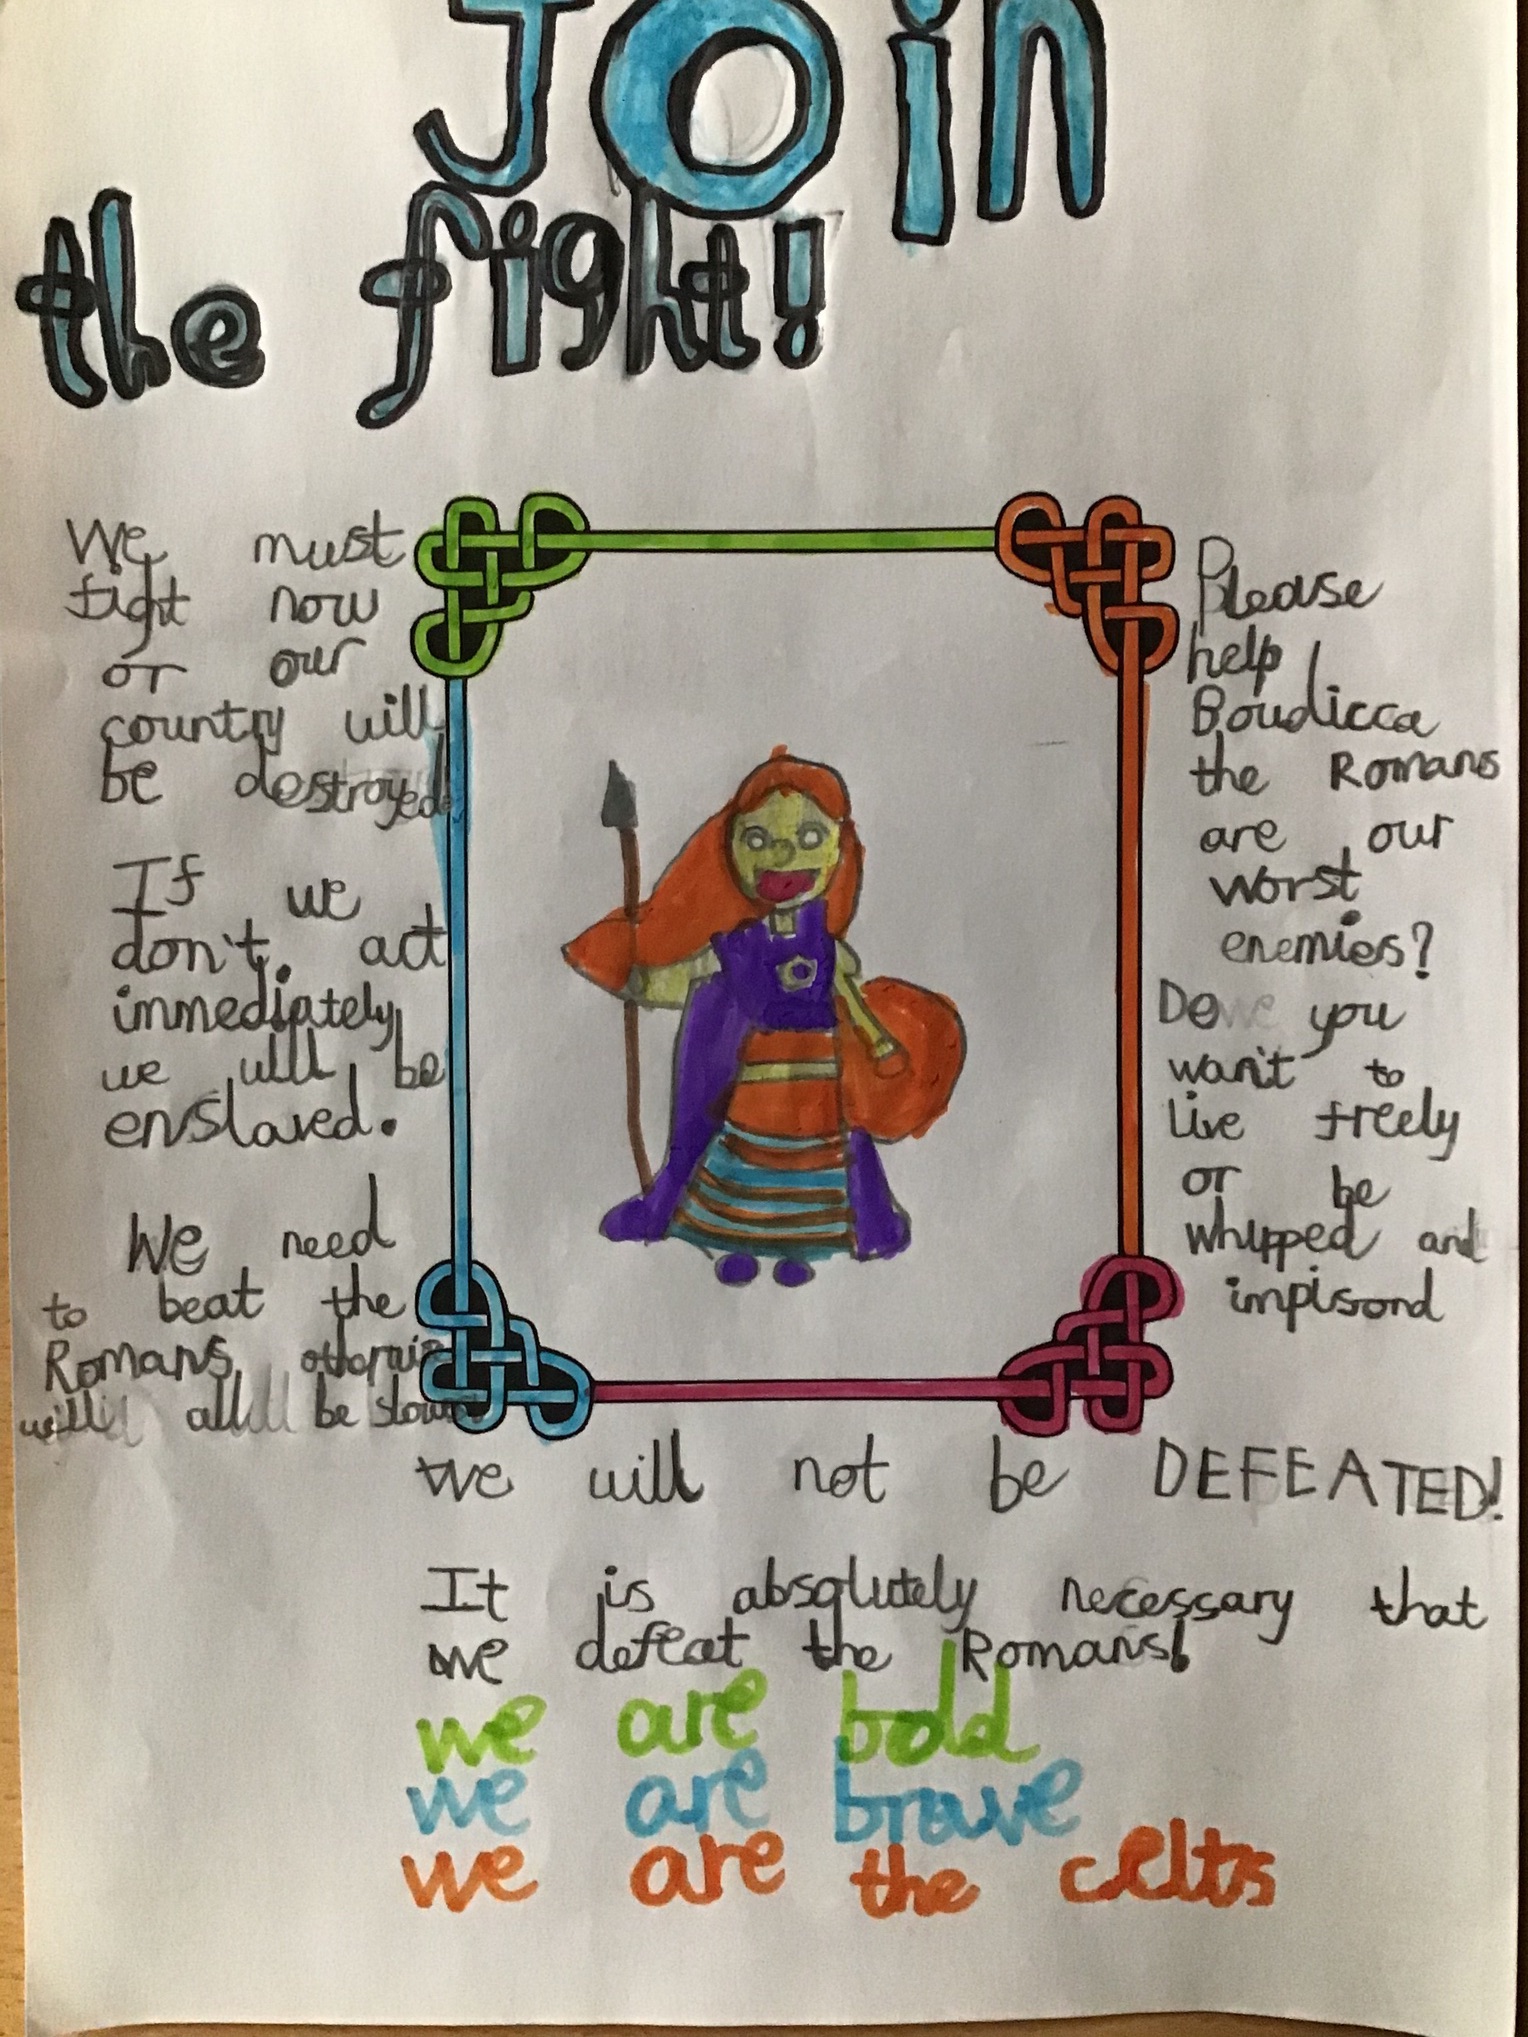 Join
the fight!
We must
fight now
or our
country will
be destroyed!
If we
don't act
immediately
we will be
enslaved.
We need
to beat the
Romans
will all be
Please
help
Boudicca
the Romans
are our
worst
enemies?
Do you
want to
live freely
or be
whipped and
impisond
We will not be DEFEATED!
It is absolutely necessary that
we defeat the Romans!
we are bold
we are brave
we are the celts